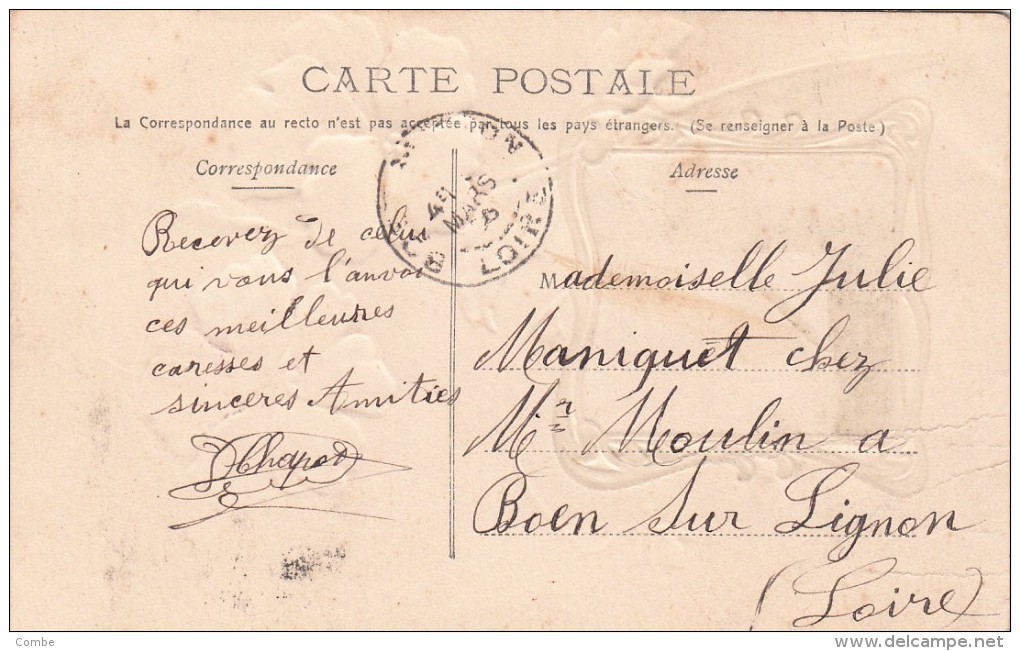 CARTE POSTALE
La Correspondance au recto n'est pas acceptée par tous les pays étrangers. (Se renseigner à la Poste.)
Correspondance
Adresse
MARS
LOIRE
Recevez de celui
qui vous l'anvoi
ces meilleures
caresses et
sinceres Amitiés
Chapot
Mademoiselle Julie
Maniquet chez
Mr Moulin a
Boen Sur Lignon
(Loire)
Combe
www.delcampe.net